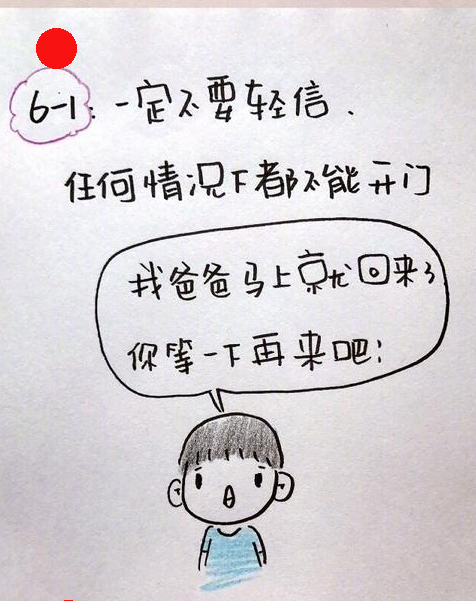 6-1:一定不要轻信、
任何情况下都不能开门
我爸爸马上就回来了
你等一下再来吧!